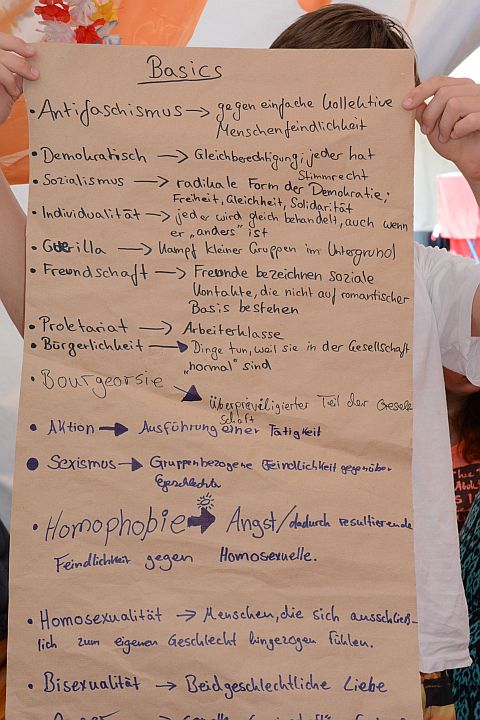 Basics
• Antifaschismus → gegen einfache Kollektive
Menschenfeindlichkeit
• Demokratisch → Gleichberechtigung; jeder hat
Stimmrecht
• Sozialismus → radikale Form der Demokratie;
Freiheit, Gleichheit, Solidarität
• Individualität → jeder wird gleich behandelt, auch wenn
er „anders" ist
• Guerilla → Kampf kleiner Gruppen im Untergrund
• Freundschaft → Freunde bezeichnen soziale
Kontakte, die nicht auf romantischer
Basis bestehen
• Proletariat → Arbeiterklasse
• Bürgerlichkeit → Dinge tun, weil sie in der Gesellschaft
„normal" sind
• Bourgeorsie → überpreviligierter Teil der Gesell
schaft
• Aktion → Ausführung einer Tätigkeit
• Sexismus → Gruppenbezogene Feindlichkeit gegenüber
Geschlechts
• Homophobie → Angst/dadurch resultierende
Feindlichkeit gegen Homosexuelle.
• Homosexualität → Menschen, die sich ausschließ-
lich zum eigenen Geschlecht hingezogen fühlen.
• Bisexualität → Beidgeschlechtliche Liebe